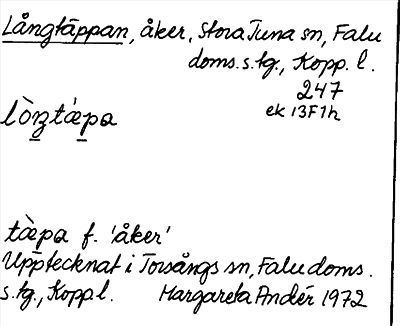 Långtäppan, åker, Stora Tuna sn, Falu
doms. s. tg., Kopp. l.
247
ek 13F1h
lòŋtǽpa
tæ̀pa f. 'åker'
Upptecknat i Torsångs sn, Falu doms.
s. tg., Kopp l. Margareta Andér 1972